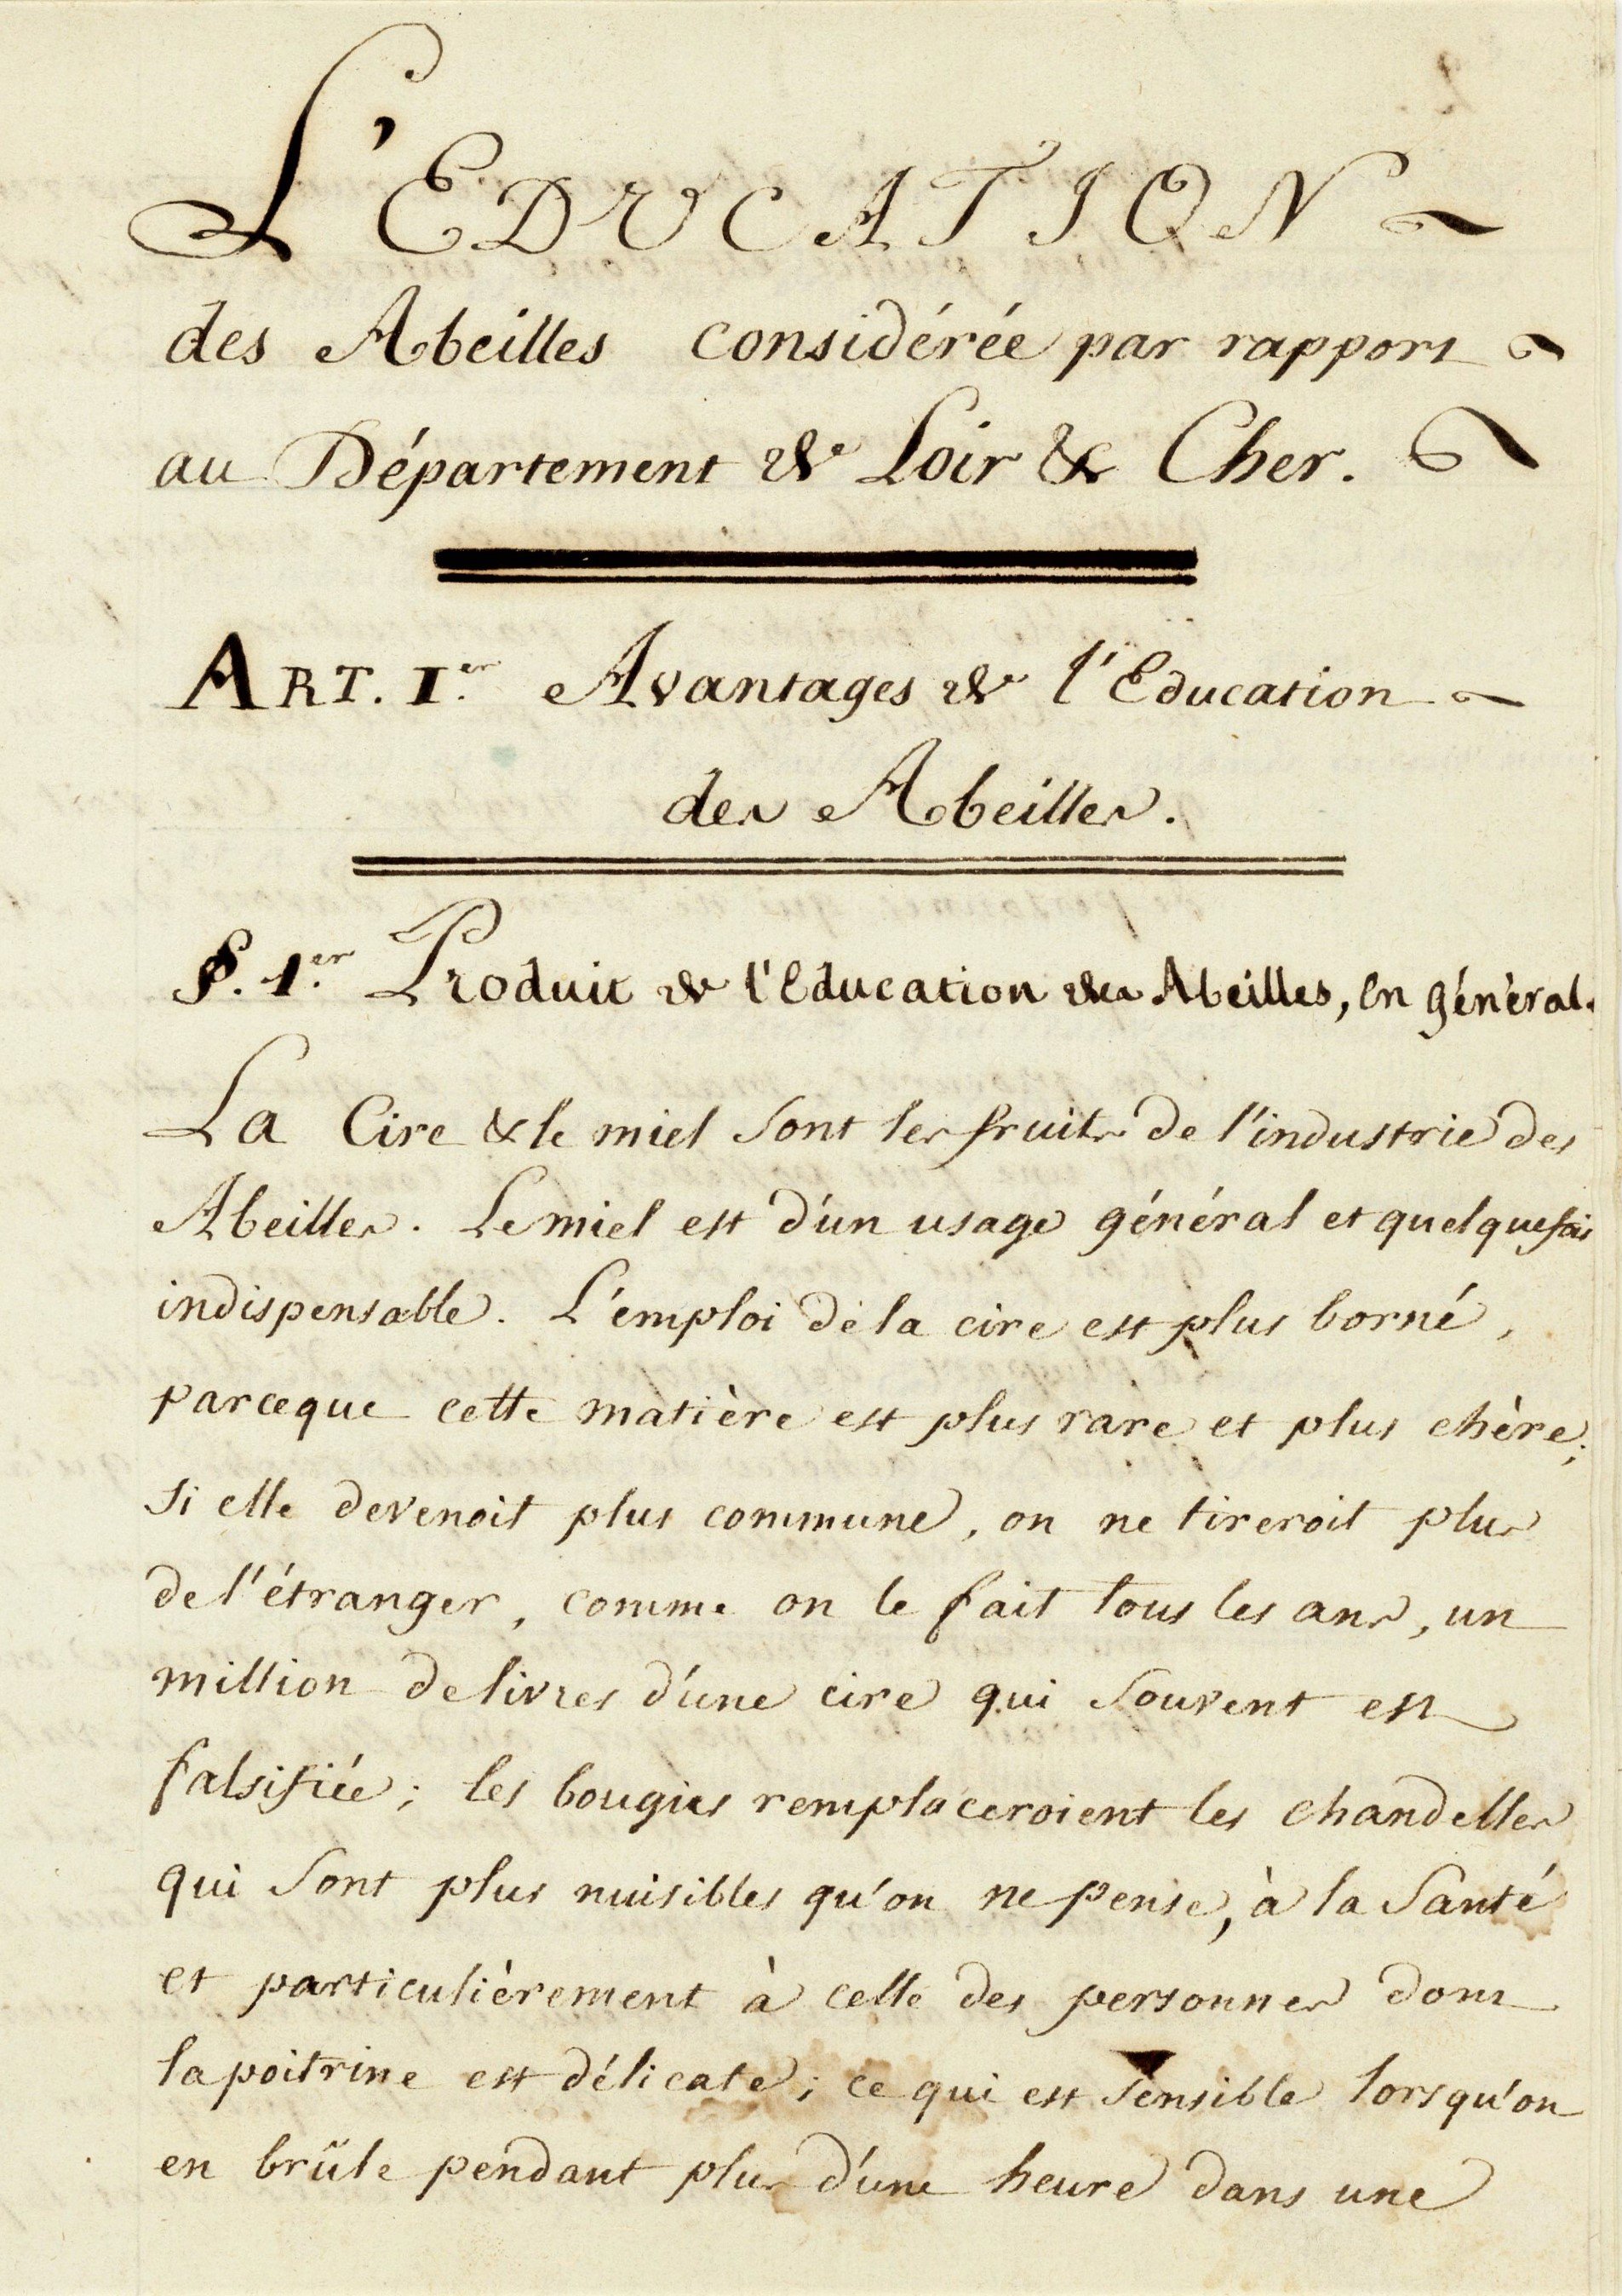 L'EDUCATION
des Abeilles considérée par rapport
au Département de Loir & Cher.
ART. I.er Avantages de l'Education
des Abeilles.
§. 1.er Produit de l'Education des Abeilles, en général.
La Cire & le miel sont les fruits de l'industrie des
Abeilles. Le miel est d'un usage général et quelquefois
indispensable. L'emploi de la cire est plus borné,
parceque cette matière est plus rare et plus chère;
si elle devenoit plus commune, on ne tireroit plus
de l'étranger, comme on le fait tous les ans, un
million de livres d'une cire qui souvent est
falsifiée; les bougies remplaceroient les chandelles
qui sont plus nuisibles qu'on ne pense, à la santé
et particulièrement à celle des personnes dont
la poitrine est délicate; ce qui est sensible lorsqu'on
en brûle pendant plus d'une heure dans une